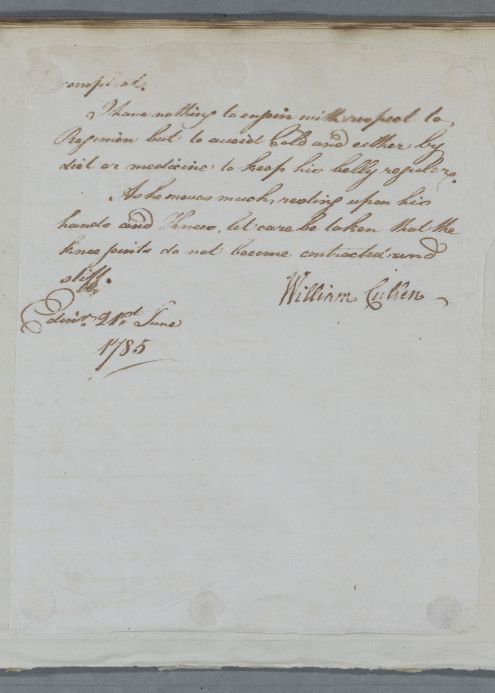 compleat.
I have nothing to enjoin with respect to
Regimen but to avoid Cold and either by
diet or medicine to keep his belly regular.
As he moves much, resting upon his
hands and Knees, let care be taken that the
knee joints do not become contracted and
stiff.
William Cullen
Edinr. 21st. June
1785